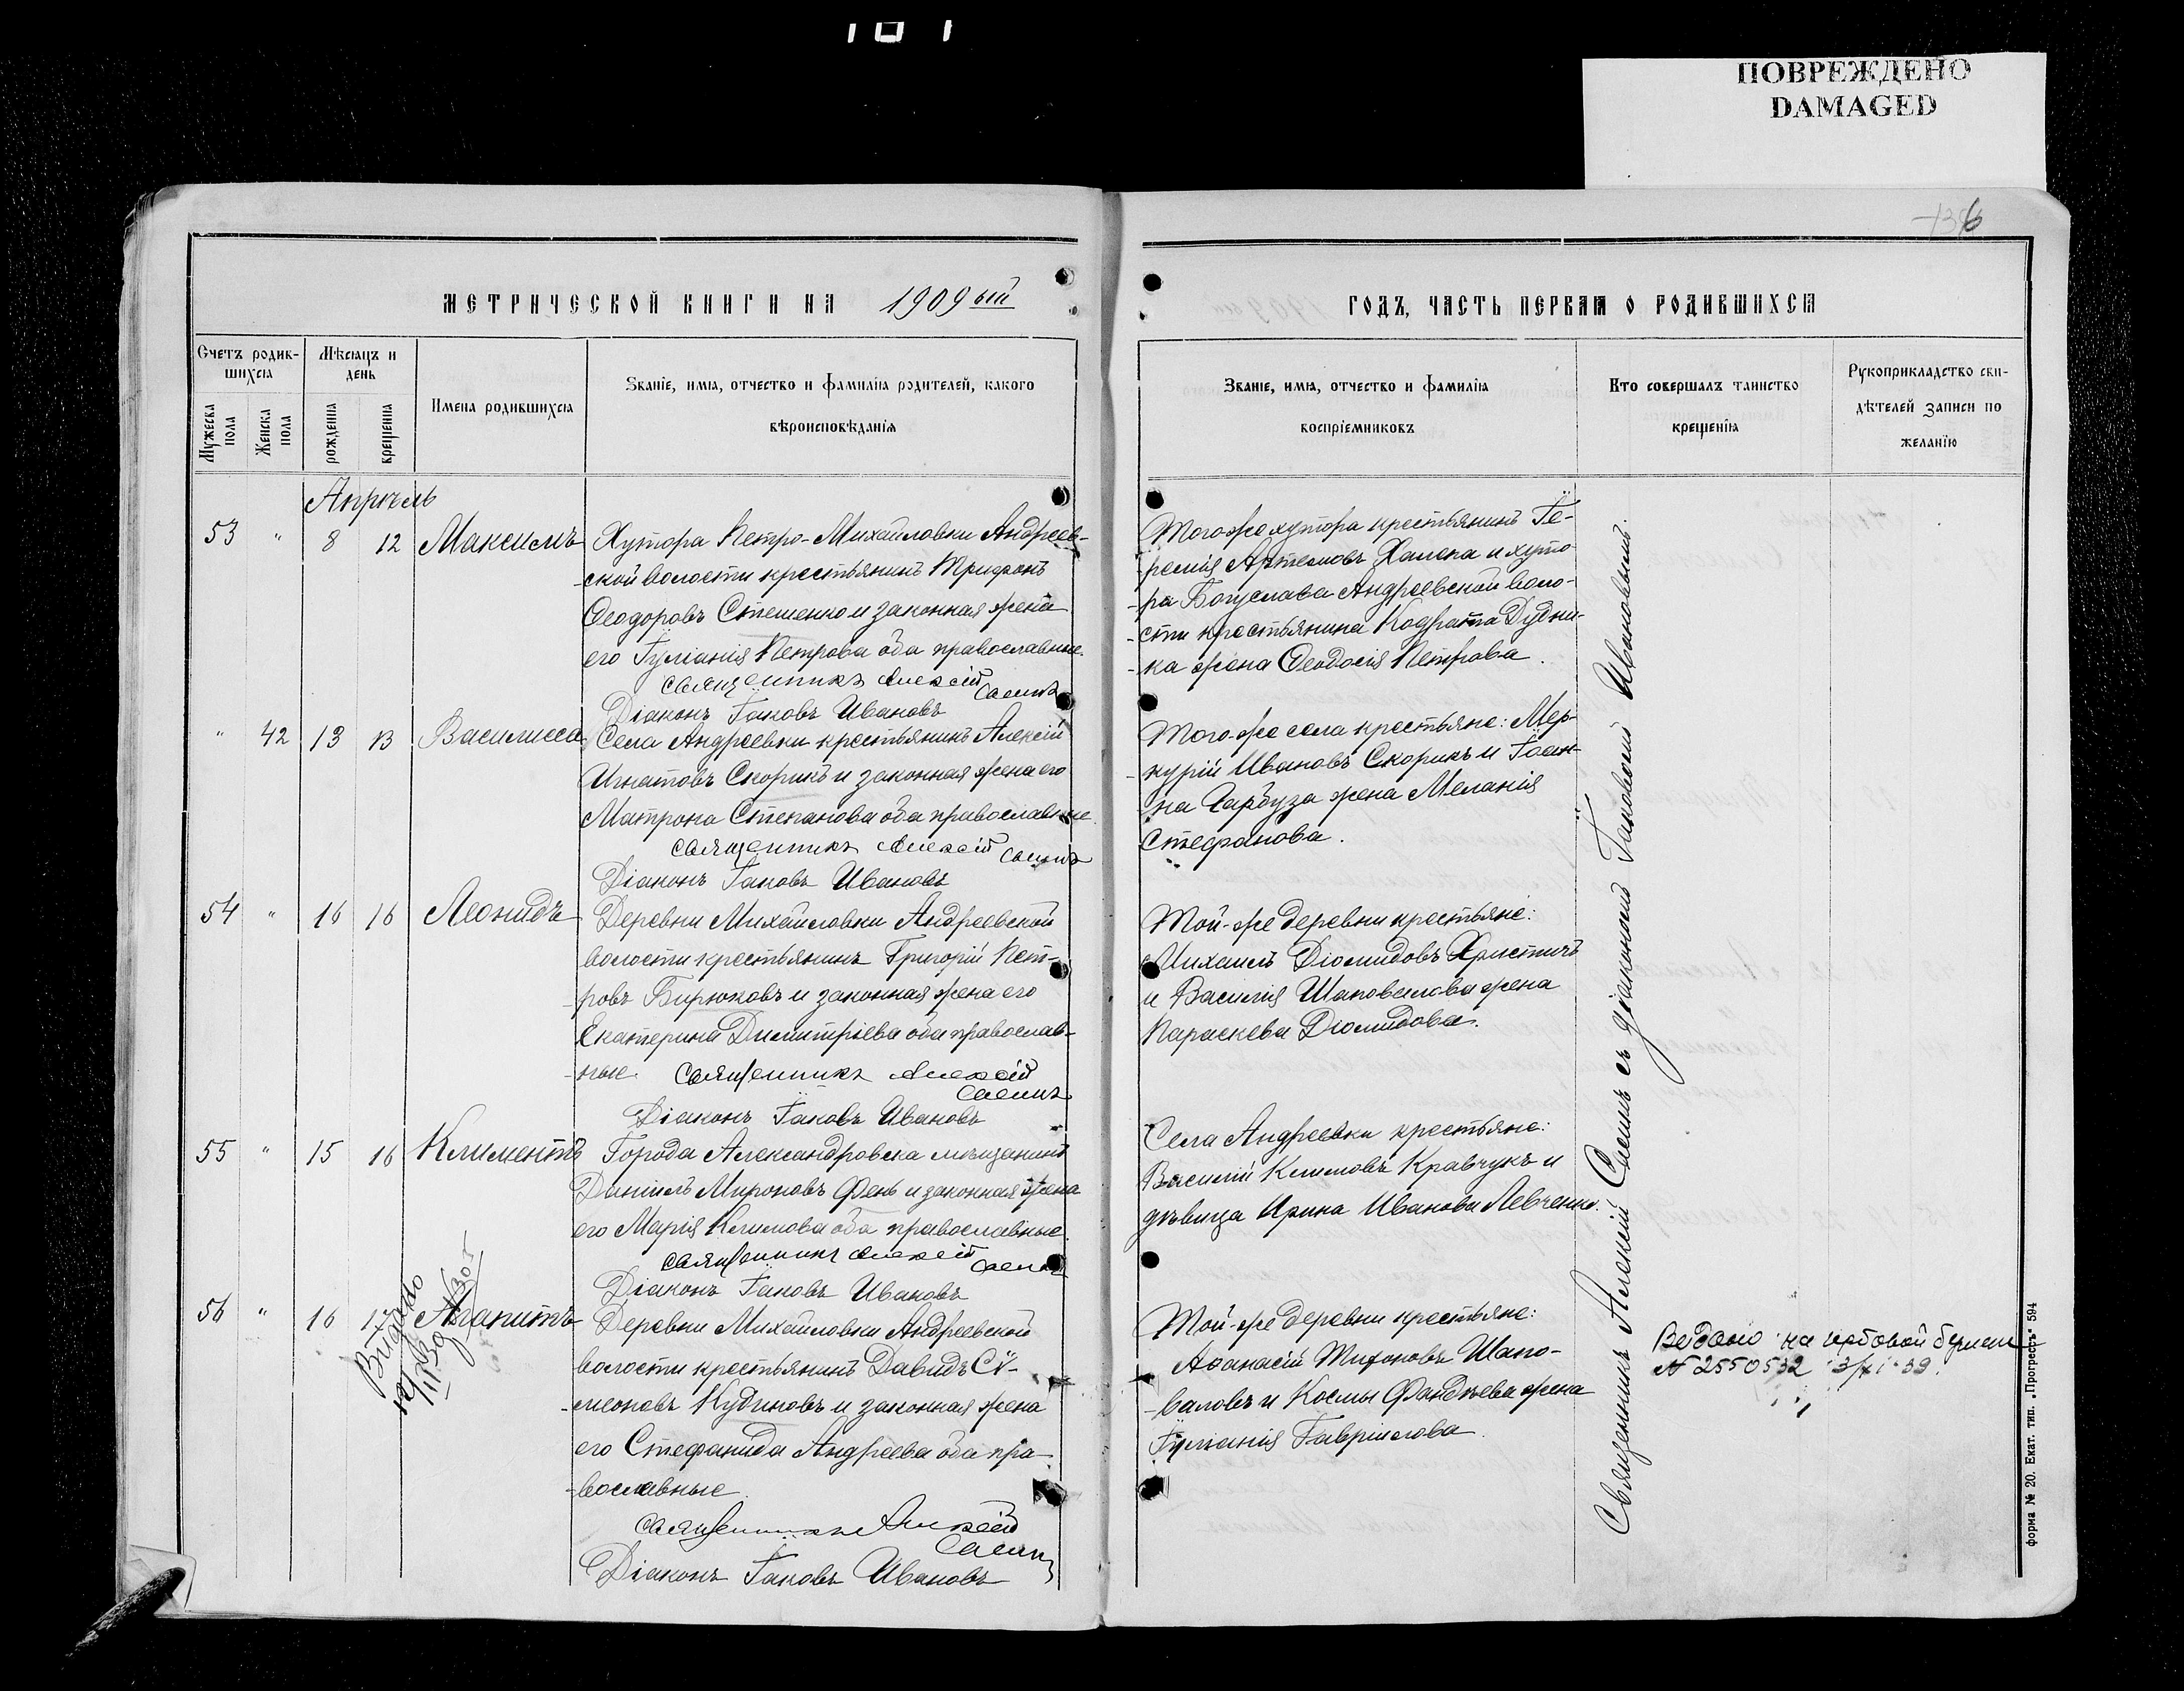 ПОВРЕЖДЕНО
DAMAGED
6
МЕТРИЧЕСКОЙ КНИГИ НА 1909ый
ГОДЪ, ЧАСТЬ ПЕРВАЯ О РОДИВШИХСЯ
Счетъ родив-
шихся
Мужеска пола
Женска пола
Мѣсяцъ и
день
рожденія
крещенія
Имена родившихся
Званіе, имя, отчество и фамилія родителей, какого
вѣроисповѣданія
Званіе, имя, отчество и фамилія
воспріемниковъ
Кто совершалъ таинство
крещенія
Рукоприкладство сви-
дѣтелей записи по
желанію
Апрѣль
53 " 8 12 Максимъ
Хутора Петро-Михайловки Андреев-
ской волости крестьянинъ Трифонъ
Ѳеодоровъ Стешенко и законная жена
его Іуліанія Петрова оба православные.
священникъ Алексій Саенъ
Діаконъ Іаковъ Ивановъ
Того-же хутора крестьянинъ
Артемовъ Халека и хуто-
ра Богуслава Андреевской воло-
сти крестьянина Кодрата Дудни-
ка жена Ѳеодосія Петрова.
" 42 13 13 Василисса
Села Андреевки крестьянинъ Алексій
Игнатовъ Скорикъ и законная жена его
Матрона Степанова оба православные.
священникъ Алексій Саенъ
Діаконъ Іаковъ Ивановъ
Того-же села крестьяне: Мер-
курій Ивановъ Скорикъ и Іоан-
на Гарбуза жена Меланія
Стефанова.
54 " 16 16 Леонидъ
Деревни Михайловки Андреевской
волости крестьянинъ Григорій Пет-
ровъ Бирюковъ и законная жена его
Екатерина Димитріева оба православ-
ные. священникъ Алексій
Саенъ
Діаконъ Іаковъ Ивановъ
Той-же деревни крестьяне:
Михаилъ Діомидовъ Христичъ
и Василія Шаповалова жена
Параскева Діомидова.
55 " 15 16 Климентъ
Города Александровска мѣщанинъ
Даніилъ Мироновъ Фень и законная жена
его Марія Климова оба православные.
священникъ Алексій Саенъ
Діаконъ Іаковъ Ивановъ
Села Андреевки крестьяне:
Василій Климовъ Кравчукъ и
дѣвица Ирина Иванова Левченко.
56 " 16 17 Агапитъ
Деревни Михайловки Андреевской
волости крестьянинъ Давидъ Сі-
меоновъ Кудиновъ и законная жена
его Стефанида Андреева оба пра-
вославные.
священникъ Алексій
Саенъ
Діаконъ Іаковъ Ивановъ
Той-же деревни крестьяне:
Аѳанасій Тихоновъ Шапо-
валовъ и Космы Фандѣева жена
Іуліанія Гавриилова.
Священникъ Алексій Саенъ съ діакономъ Іаковомъ Ивановымъ.
Видано
Видано на гербовой бумаге
№ 2550532 3/XI-39.
Форма № 20. Екат. тип. „Прогрессъ" 594